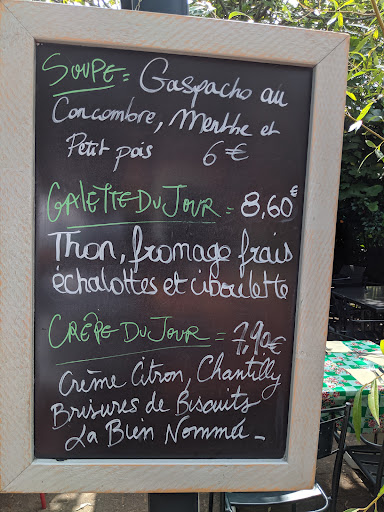 SOUPE = Gaspacho au
Concombre, Menthe et
Petit pois 6 €
GALETTE DU JOUR = 8,60€
Thon, fromage frais
échalottes et ciboulette
CRÊPE DU JOUR = 7,90€
Crème Citron, Chantilly
Brisures de Biscuits
La Bien Nommée -